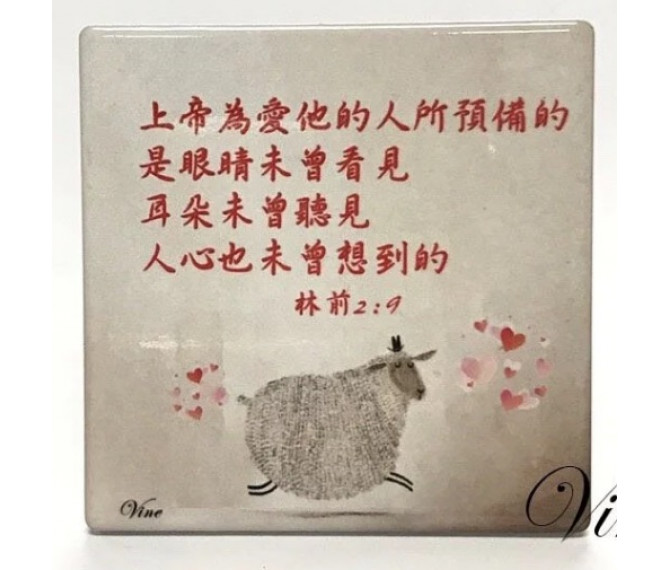 上帝為愛他的人所預備的
是眼睛未曾看見
耳朵未曾聽見
人心也未曾想到的
林前2:9
Vine
Vi